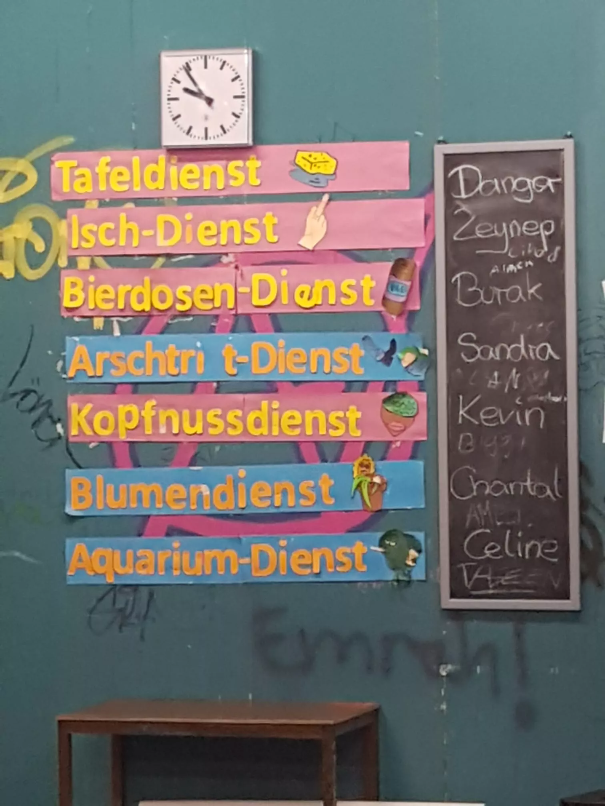 Tafeldienst
Isch-Dienst
Bierdosen-Dienst
Arschtri t-Dienst
Kopfnussdienst
Blumendienst
Aquarium-Dienst
Danger
Zeynep
Burak
Sandra
Kevin
Chantal
Celine
Emrah!